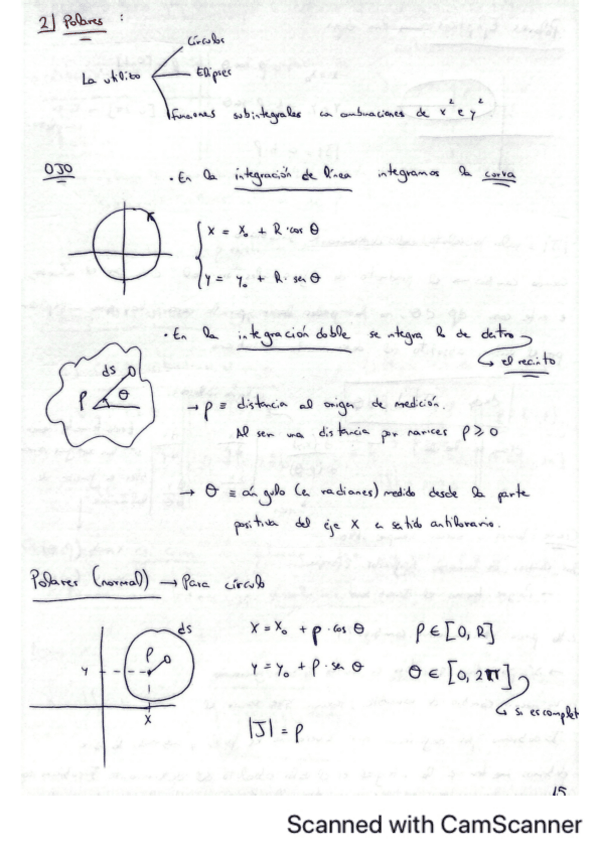 2) Polares :
Círculos
La utilizo
Elipses
Funciones subintegrales con combinaciones de x² e y²
OJO
· En la integración de línea integramos la curva
x = x₀ + R · cos θ
y = y₀ + R · sen θ
· En la integración doble se integra lo de dentro
el recinto
ds
ρ θ
→ ρ ≡ distancia al origen de medición.
Al ser una distancia por narices ρ ⩾ 0
→ θ ≡ ángulo (en radianes) medido desde la parte
positiva del eje X en sentido antihorario.
Polares (normal) → Para círculo
ds
x = x₀ + ρ · cos θ ρ ∈ [0, R]
ρ
y
y = y₀ + ρ · sen θ θ ∈ [0, 2π]
si es complet
x
|J| = ρ
15
Scanned with CamScanner